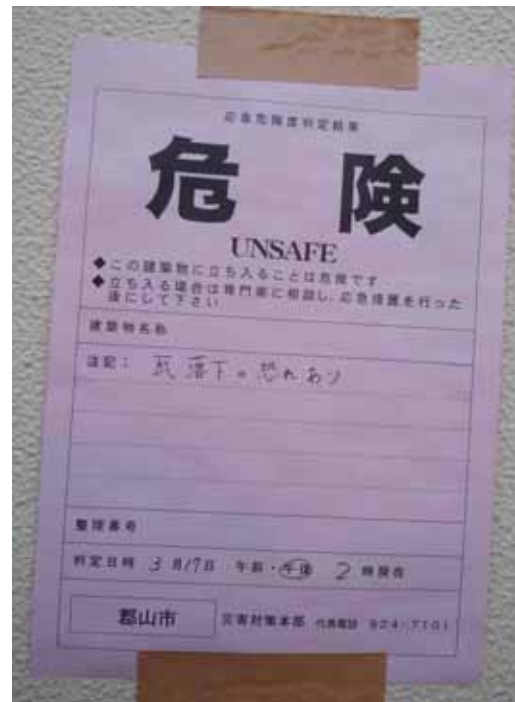 応急危険度判定結果
危 険
UNSAFE
◆この建築物に立ち入ることは危険です
◆立ち入る場合は専門家に相談し、応急措置を行った
後にして下さい
建築物名称
注記: 瓦落下の恐れあり
整理番号
判定日時 3月17日 午前・午後 2 時現在
郡山市 災害対策本部 代表電話 924-7101